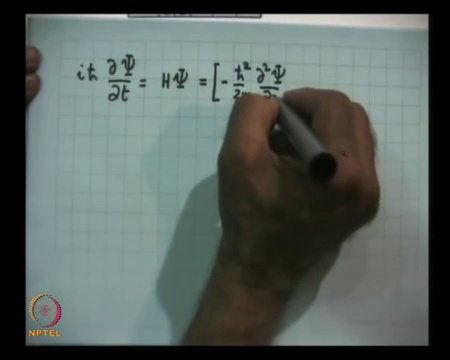 iħ ∂Ψ/∂t = HΨ = [ - ħ²/2m ∂²Ψ/∂
NPTEL